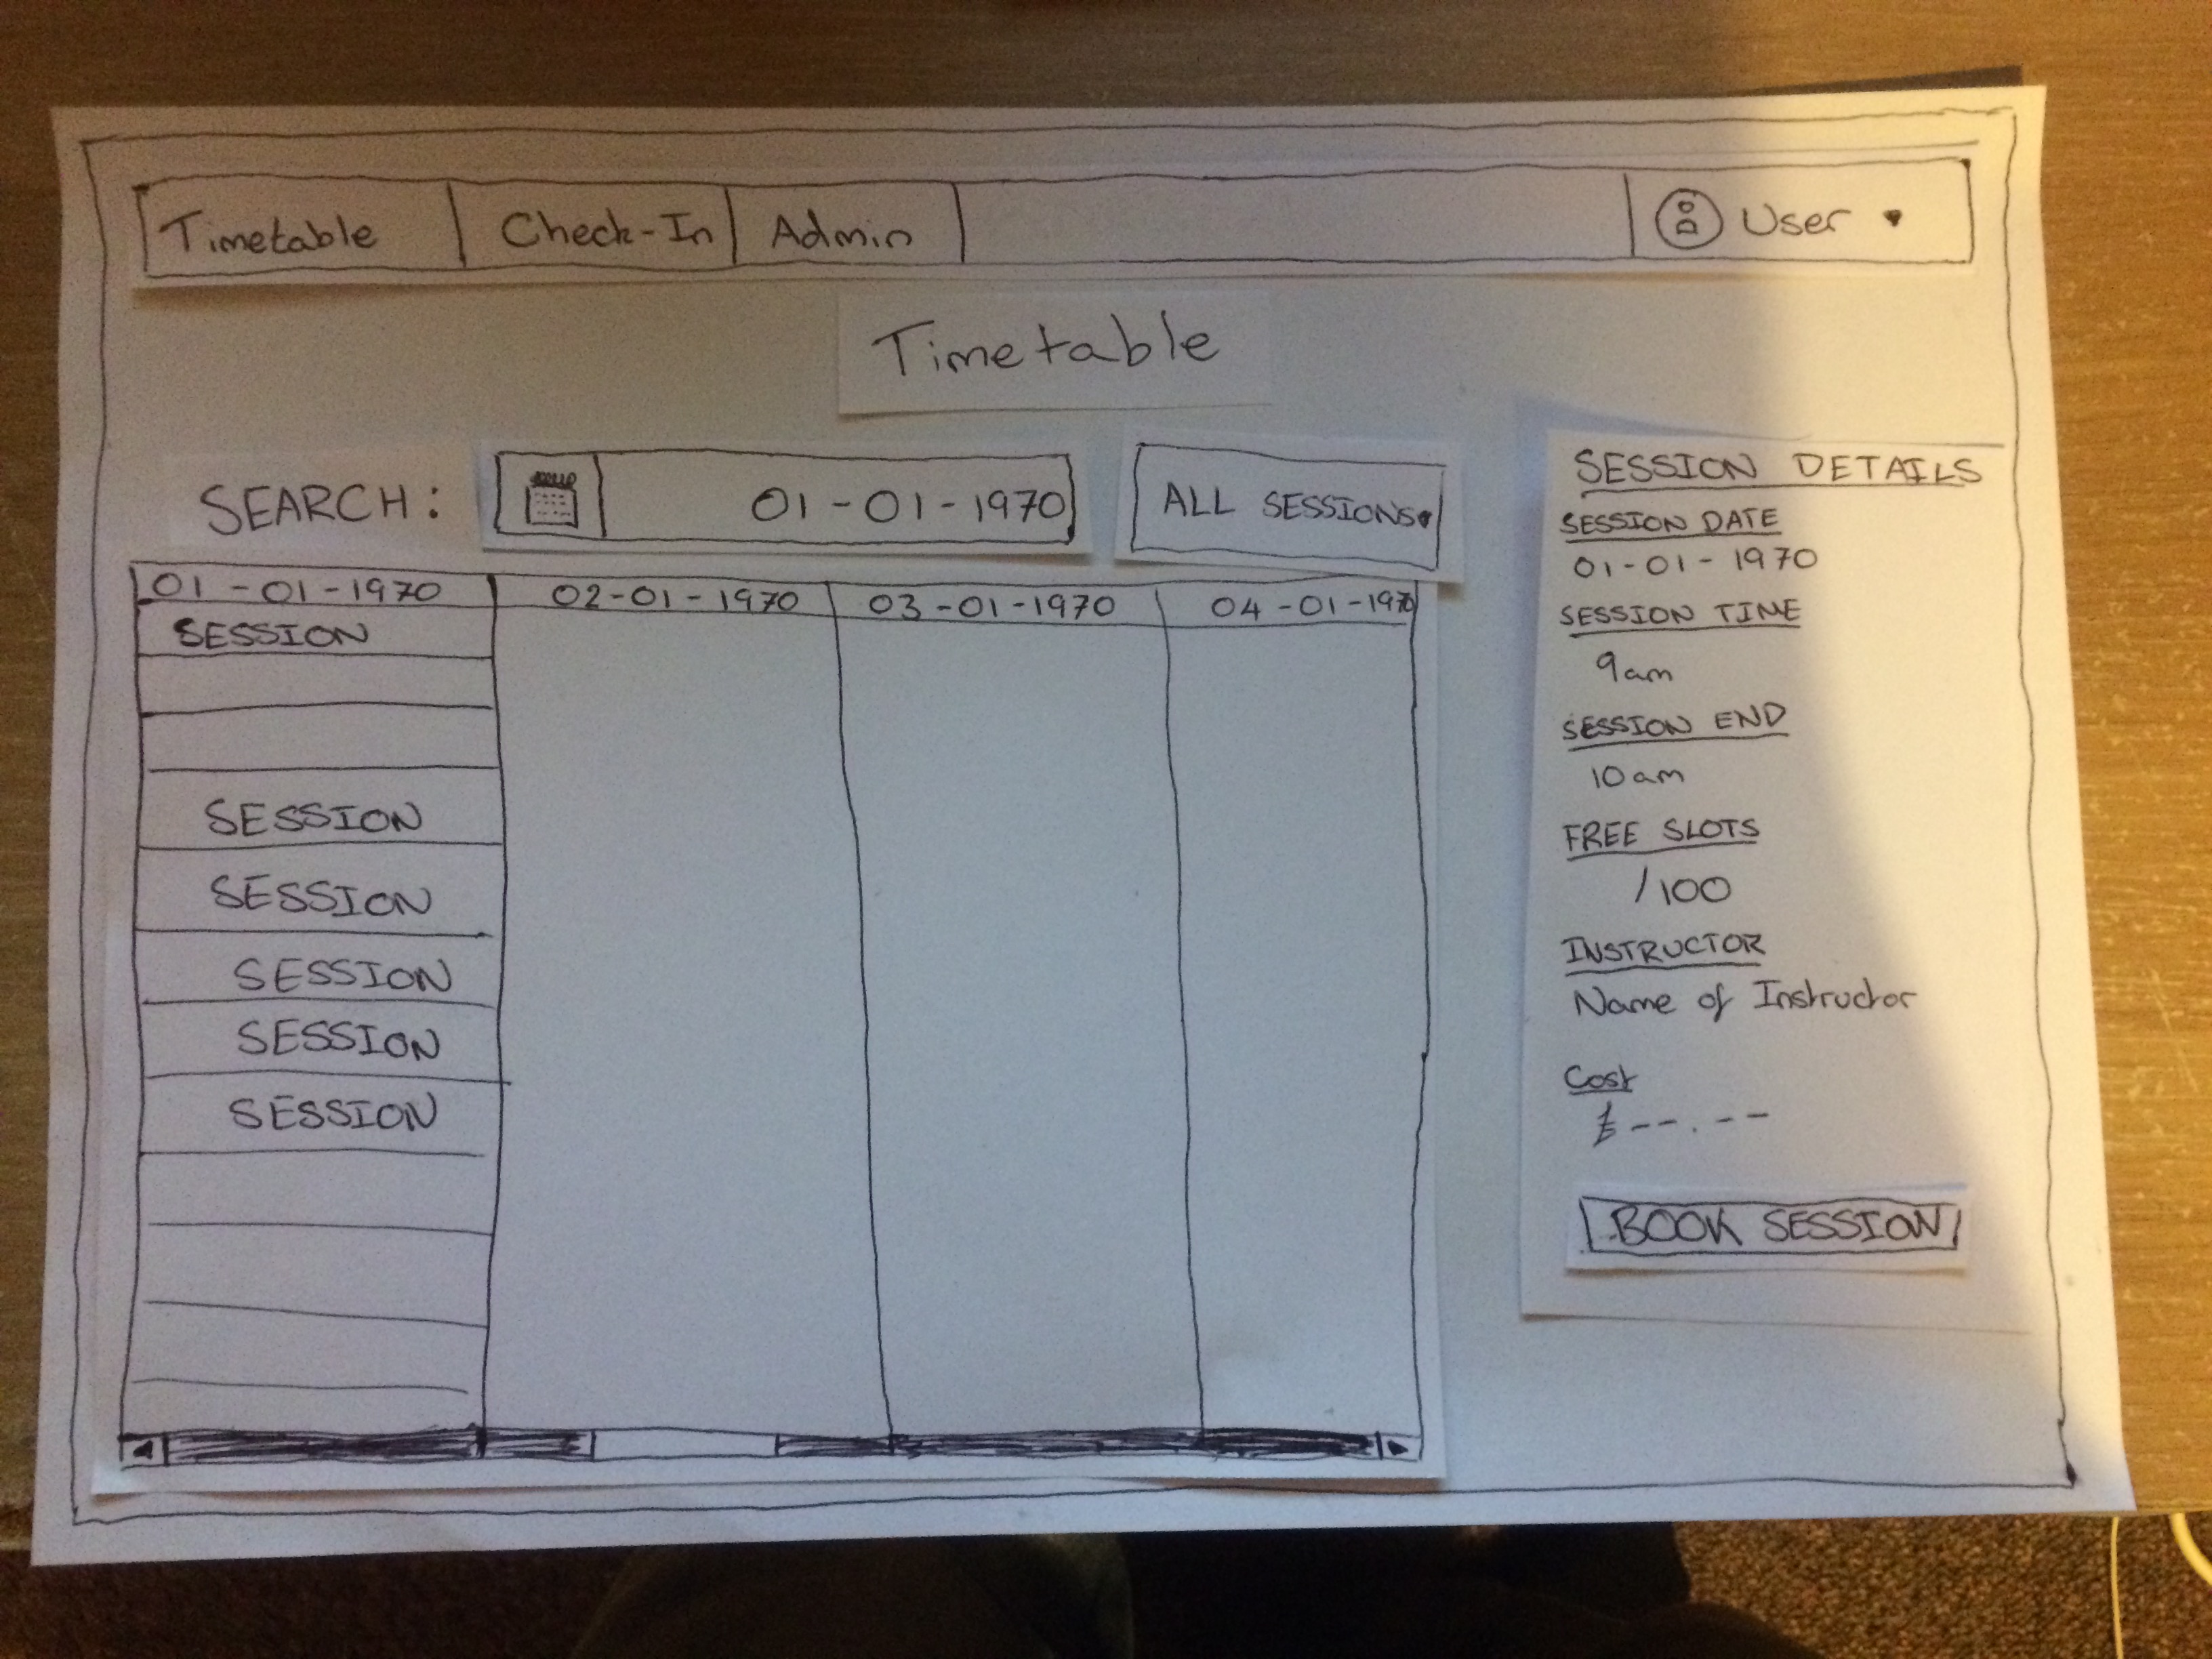 Timetable Check-In Admin User
Timetable
SEARCH: 01-01-1970 ALL SESSIONS
01-01-1970 02-01-1970 03-01-1970 04-01-1970
SESSION
SESSION
SESSION
SESSION
SESSION
SESSION
SESSION DETAILS
SESSION DATE
01-01-1970
SESSION TIME
9am
SESSION END
10am
FREE SLOTS
/100
INSTRUCTOR
Name of Instructor
Cost
£--.--
BOOK SESSION